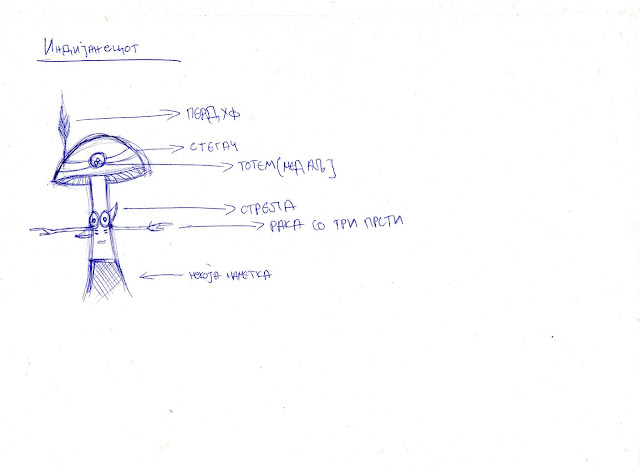 Индијанецот
ПЕРДУФ
СТЕГАЧ
ТОТЕМ (МЕДАЉ)
СТРЕЛА
РАКА СО ТРИ ПРСТИ
НЕКОЈА НАМЕТКА